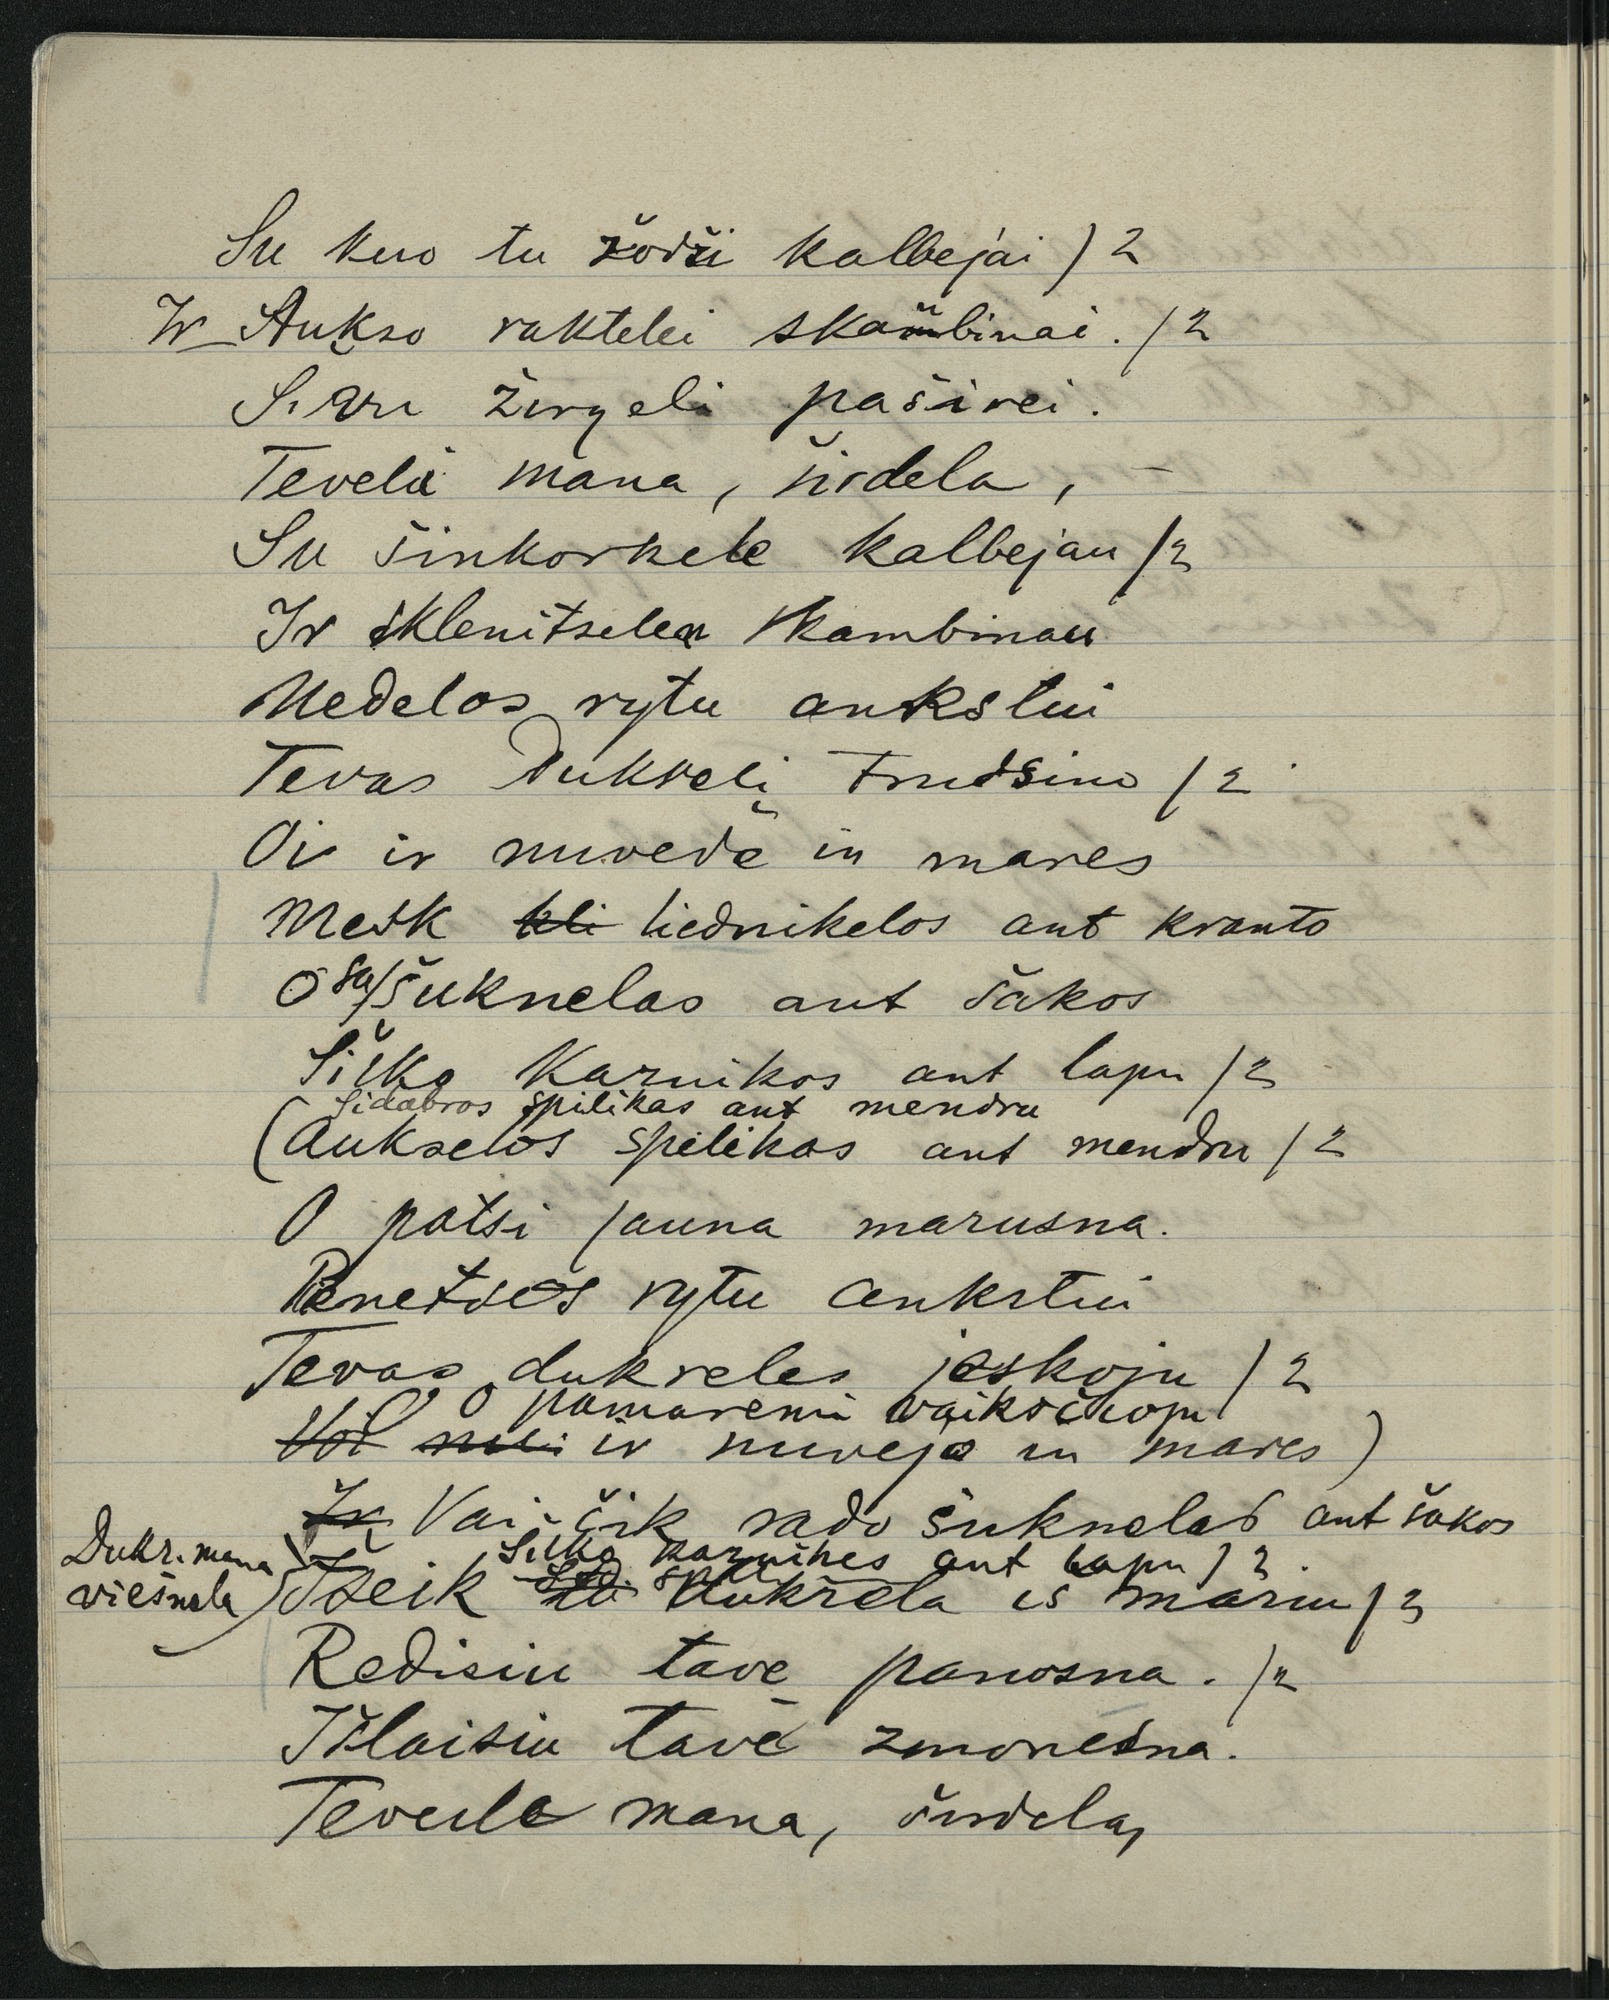 Su kuo tu žodži kalbejai ) 2
Ir Aukso raktelei skambinai . / 2
Siru žirgeli paširei .
Teveli mana , širdela , –
Su šinkorkele kalbejau / 2
Ir sklenitselea skambinau
Nedelos rytu ankstui
Tevas Dukreli trudsino / 2
Oi ir nuvedė in mares
Mesk kli liednikelos ant kranto
O sa/šuknelas ant šakos
Šilko Kaznikos ant lapu / 2
Sidabros špilikas ant mendru
( Aukselos spilikas ant mendru / 2
O patsi jauna marusna .
Penetsos rytu ankstui
Tevas dukreles jeskoju / 2
O pamaremi vaikščioju
Voi nu ir nuveja in mares )
Ir Vai čik rado šuknelas ant šakos
Šilko kaznikes ant lapu ) 2 .
Dukr. mana viešnela ) Išeik dukrela iš mariu / 2
Redisiu tave panosna . / 2
Išlaisiu tavė zmonesna .
Tevele mana , širdela,